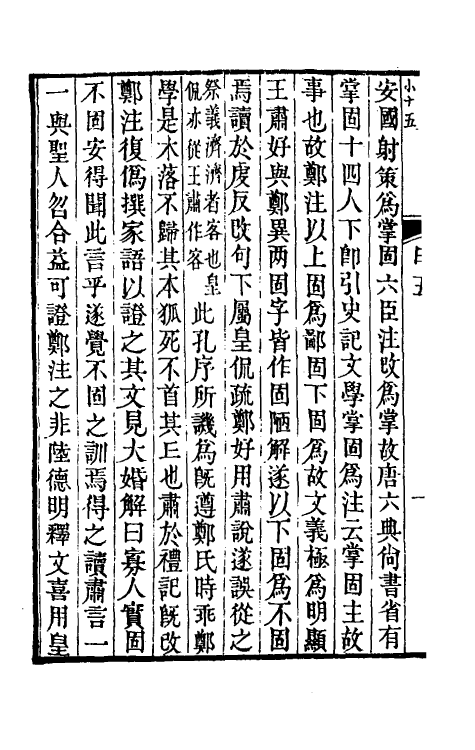 小十五
安國射策為掌固六臣注改為掌故唐六典尙書省有
掌固十四人下卽引史記文學掌固為注云掌固主故
事也故鄭注以上固為鄙固下固為故文義極為明顯
王肅好與鄭異两固字皆作固陋解遂以下固為不固
焉讀於虔反改句下屬皇侃疏鄭好用肅說遂誤從之
祭義濟濟者客也皇
侃亦從王肅作客
此孔序所譏為旣遵鄭氏時乖鄭
學是木落不歸其本狐死不首其丘也肅於禮記旣改
鄭注復僞撰家語以證之其文見大婚解曰寡人實固
不固安得聞此言乎遂覺不固之訓焉得之讀肅言一
一與聖人吻合益可證鄭注之非陸德明釋文喜用皇